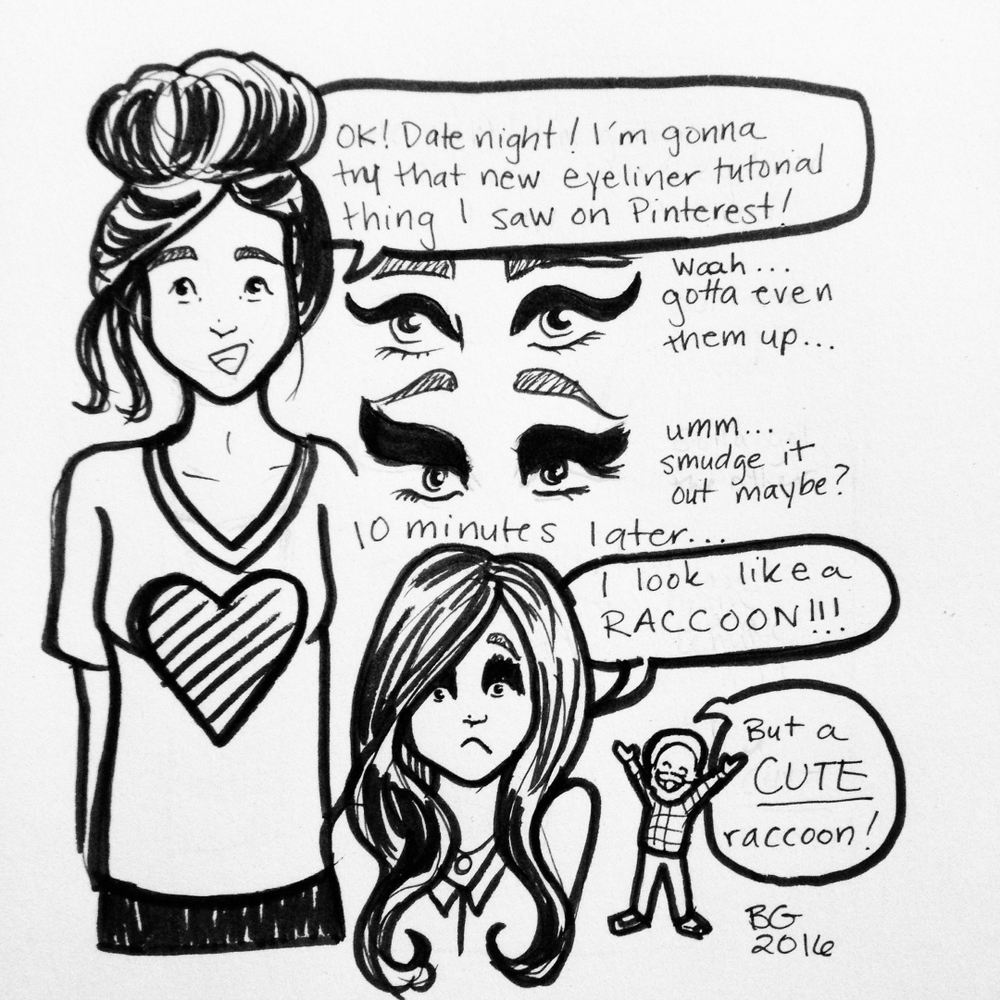 OK! Date night! I'm gonna
try that new eyeliner tutorial
thing I saw on Pinterest!
Woah...
gotta even
them up...
umm...
smudge it
out maybe?
10 minutes later...
I look like a
RACCOON!!!
But a
CUTE
raccoon!
BG
2016